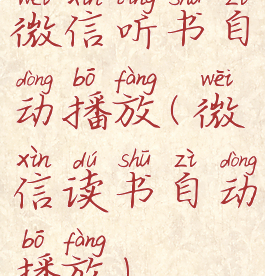 wēi xìn tīng shū zì
微信听书自
dòng bō fàng wēi
动播放(微
xìn dú shū zì dòng
信读书自动
bō fàng
播放)